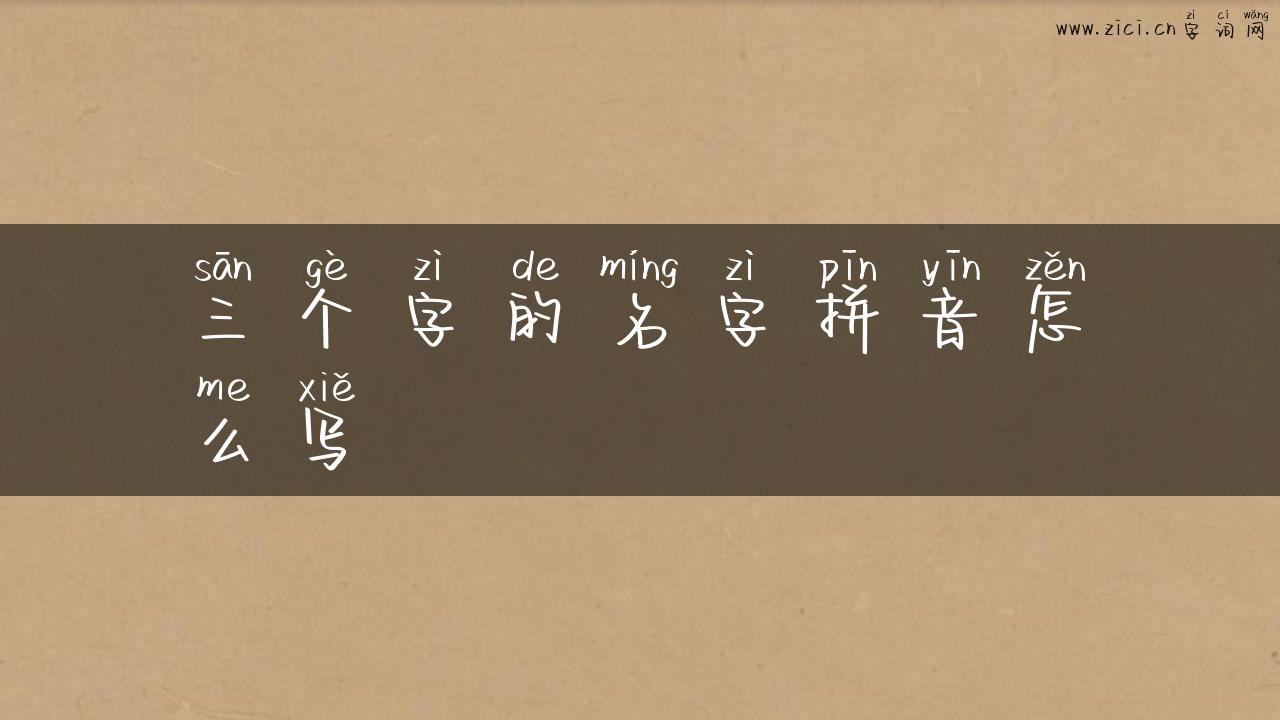 zì cí wǎng
www.zici.cn 字词网
sān gè zì de míng zì pīn yīn zěn
三个字的名字拼音怎
me xiě
么写